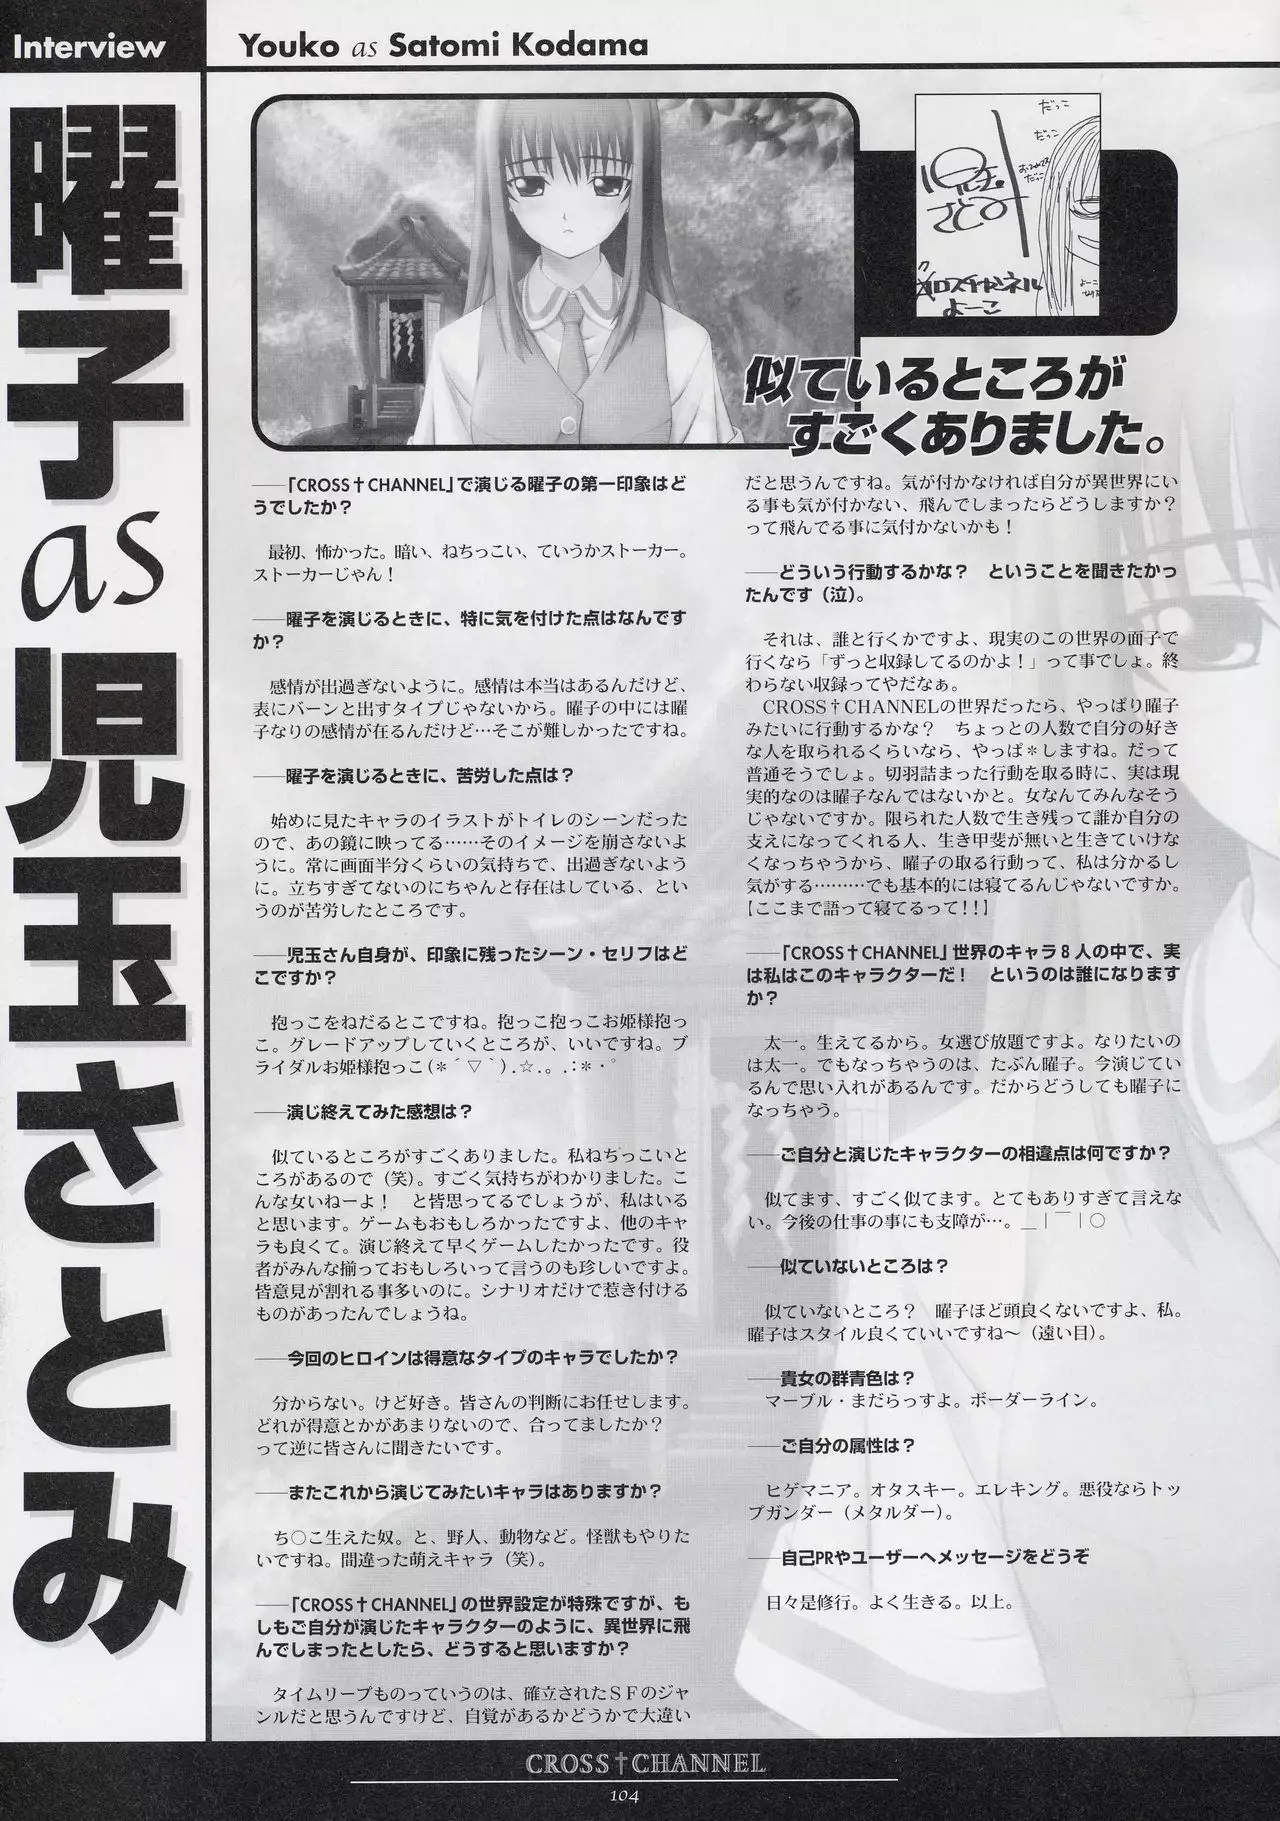 Interview
Youko as Satomi Kodama
曜子 as 児玉さとみ
だっこ
だっこ
だっこ
児玉さとみ
クロスチャンネル
よーこ
似ているところが
すごくありました。
――「CROSS†CHANNEL」で演じる曜子の第一印象はど
うでしたか？
最初、怖かった。暗い、ねちっこい、ていうかストーカー。
ストーカーじゃん！
――曜子を演じるときに、特に気を付けた点はなんです
か？
感情が出過ぎないように。感情は本当はあるんだけど、
表にバーンと出すタイプじゃないから。曜子の中には曜
子なりの感情が在るんだけど…そこが難しかったですね。
――曜子を演じるときに、苦労した点は？
始めに見たキャラのイラストがトイレのシーンだった
ので、あの鏡に映ってる……そのイメージを崩さないよ
うに。常に画面半分くらいの気持ちで、出過ぎないよう
に。立ちすぎてないのにちゃんと存在はしている、とい
うのが苦労したところです。
――児玉さん自身が、印象に残ったシーン・セリフはど
こですか？
抱っこをねだるとこですね。抱っこ抱っこお姫様抱っ
こ。グレードアップしていくところが、いいですね。ブ
ライダルお姫様抱っこ(＊´▽｀).☆.。.:＊・゜
――演じ終えてみた感想は？
似ているところがすごくありました。私ねぢっこいと
ころがあるので（笑）。すごく気持ちがわかりました。こ
んな女いねーよ！　と皆思ってるでしょうが、私はいる
と思います。ゲームもおもしろかったですよ、他のキャ
ラも良くて。演じ終えて早くゲームしたかったです。役
者がみんな揃っておもしろいって言うのも珍しいですよ。
皆意見が割れる事多いのに。シナリオだけで惹き付ける
ものがあったんでしょうね。
――今回のヒロインは得意なタイプのキャラでしたか？
分からない。けど好き。皆さんの判断にお任せします。
どれが得意とかがあまりないので、合ってましたか？
って逆に皆さんに聞きたいです。
――またこれから演じてみたいキャラはありますか？
ち○こ生えた奴。と、野人、動物など。怪獣もやりた
いですね。間違った萌えキャラ（笑）。
――「CROSS†CHANNEL」の世界設定が特殊ですが、も
しもご自分が演じたキャラクターのように、異世界に飛
んでしまったとしたら、どうすると思いますか？
タイムリープものっていうのは、確立されたＳＦのジャ
ンルだと思うんですけど、自覚があるかどうかで大違い
だと思うんですね。気が付かなければ自分が異世界にい
る事も気が付かない、飛んでしまったらどうしますか？
って飛んでる事に気付かないかも！
――どういう行動するかな？　ということを聞きたかっ
たんです（泣）。
それは、誰と行くかですよ、現実のこの世界の面子で
行くなら「ずっと収録してるのかよ！」って事でしょ。終
わらない収録ってやだなぁ。
CROSS†CHANNELの世界だったら、やっぱり曜子
みたいに行動するかな？　ちょっとの人数で自分の好き
な人を取られるくらいなら、やっぱ＊しますね。だって
普通そうでしょ。切羽詰まった行動を取る時に、実は現
実的なのは曜子なんではないかと。女なんてみんなそう
じゃないですか。限られた人数で生き残って誰か自分の
支えになってくれる人、生き甲斐が無いと生きていけな
くなっちゃうから、曜子の取る行動って、私は分かるし
気がする………でも基本的には寝てるんじゃないですか。
【ここまで語って寝てるって!!】
――「CROSS†CHANNEL」世界のキャラ8人の中で、実
は私はこのキャラクターだ！　というのは誰になります
か？
太一。生えてるから。女選び放題ですよ。なりたいの
は太一。でもなっちゃうのは、たぶん曜子。今演じてい
るんで思い入れがあるんです。だからどうしても曜子に
なっちゃう。
――ご自分と演じたキャラクターの相違点は何ですか？
似てます、すごく似てます。とてもありすぎて言えな
い。今後の仕事の事にも支障が…。＿|￣|○
――似ていないところは？
似ていないところ？　曜子ほど頭良くないですよ、私。
曜子はスタイル良くていいですね～（遠い目）。
――貴女の群青色は？
マーブル・まだらっすよ。ボーダーライン。
――ご自分の属性は？
ヒゲマニア。オタスキー。エレキング。悪役ならトッ
プガンダー（メタルダー）。
――自己PRやユーザーへメッセージをどうぞ
日々是修行。よく生きる。以上。
CROSS†CHANNEL
104